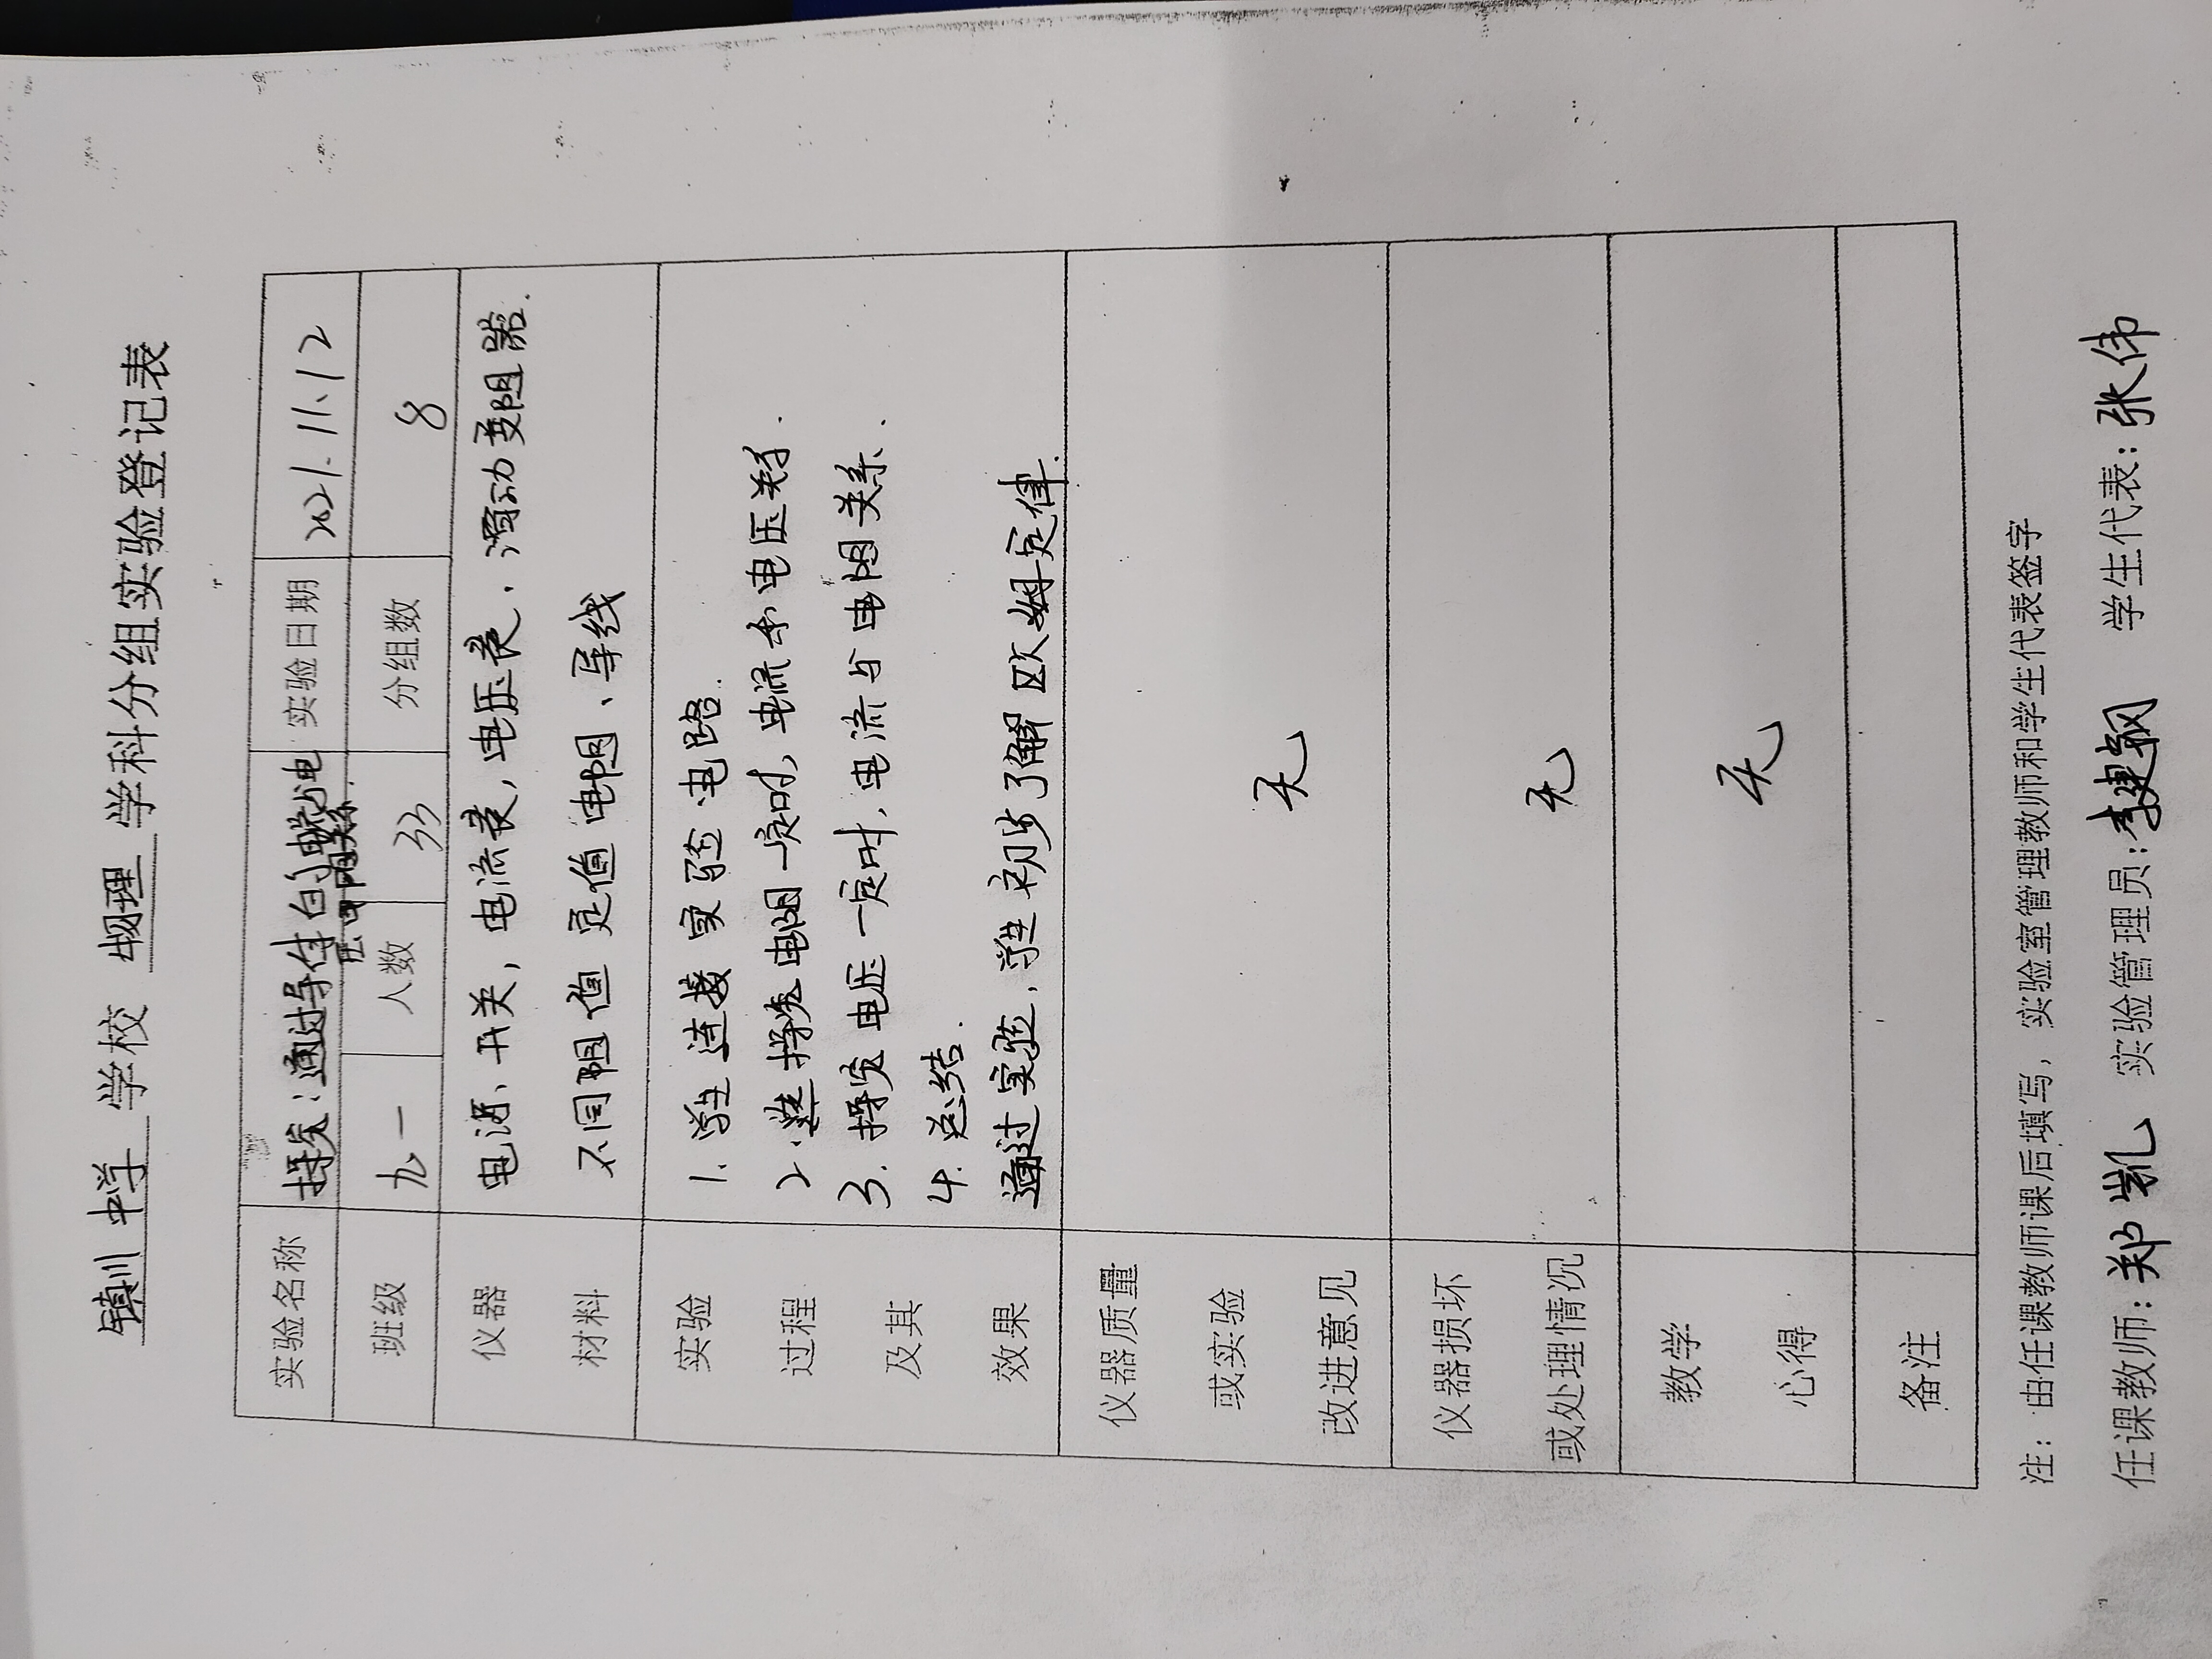 镇川中学 学校 物理 学科分组实验登记表
实验名称 探究：通过导体的电流与电压、电阻关系. 实验日期 2021.11.12
班级 九一 人数 33 分组数 8
仪器 电源、开关，电流表，电压表，滑动变阻器.
材料 不同阻值定值电阻、导线
实验 1. 学生连接实验电路.
过程 2. 学生探究电阻一定时，电流和电压关系.
及其 3. 探究电压一定时，电流与电阻关系.
4. 总结.
效果 通过实验，学生初步了解欧姆定律.
仪器质量
或实验 无
改进意见
仪器损坏
或处理情况 无
教学
心得 无
备注
注：由任课教师课后填写，实验室管理教师和学生代表签字
任课教师：郑凯 实验管理员：李建钢 学生代表：张伟